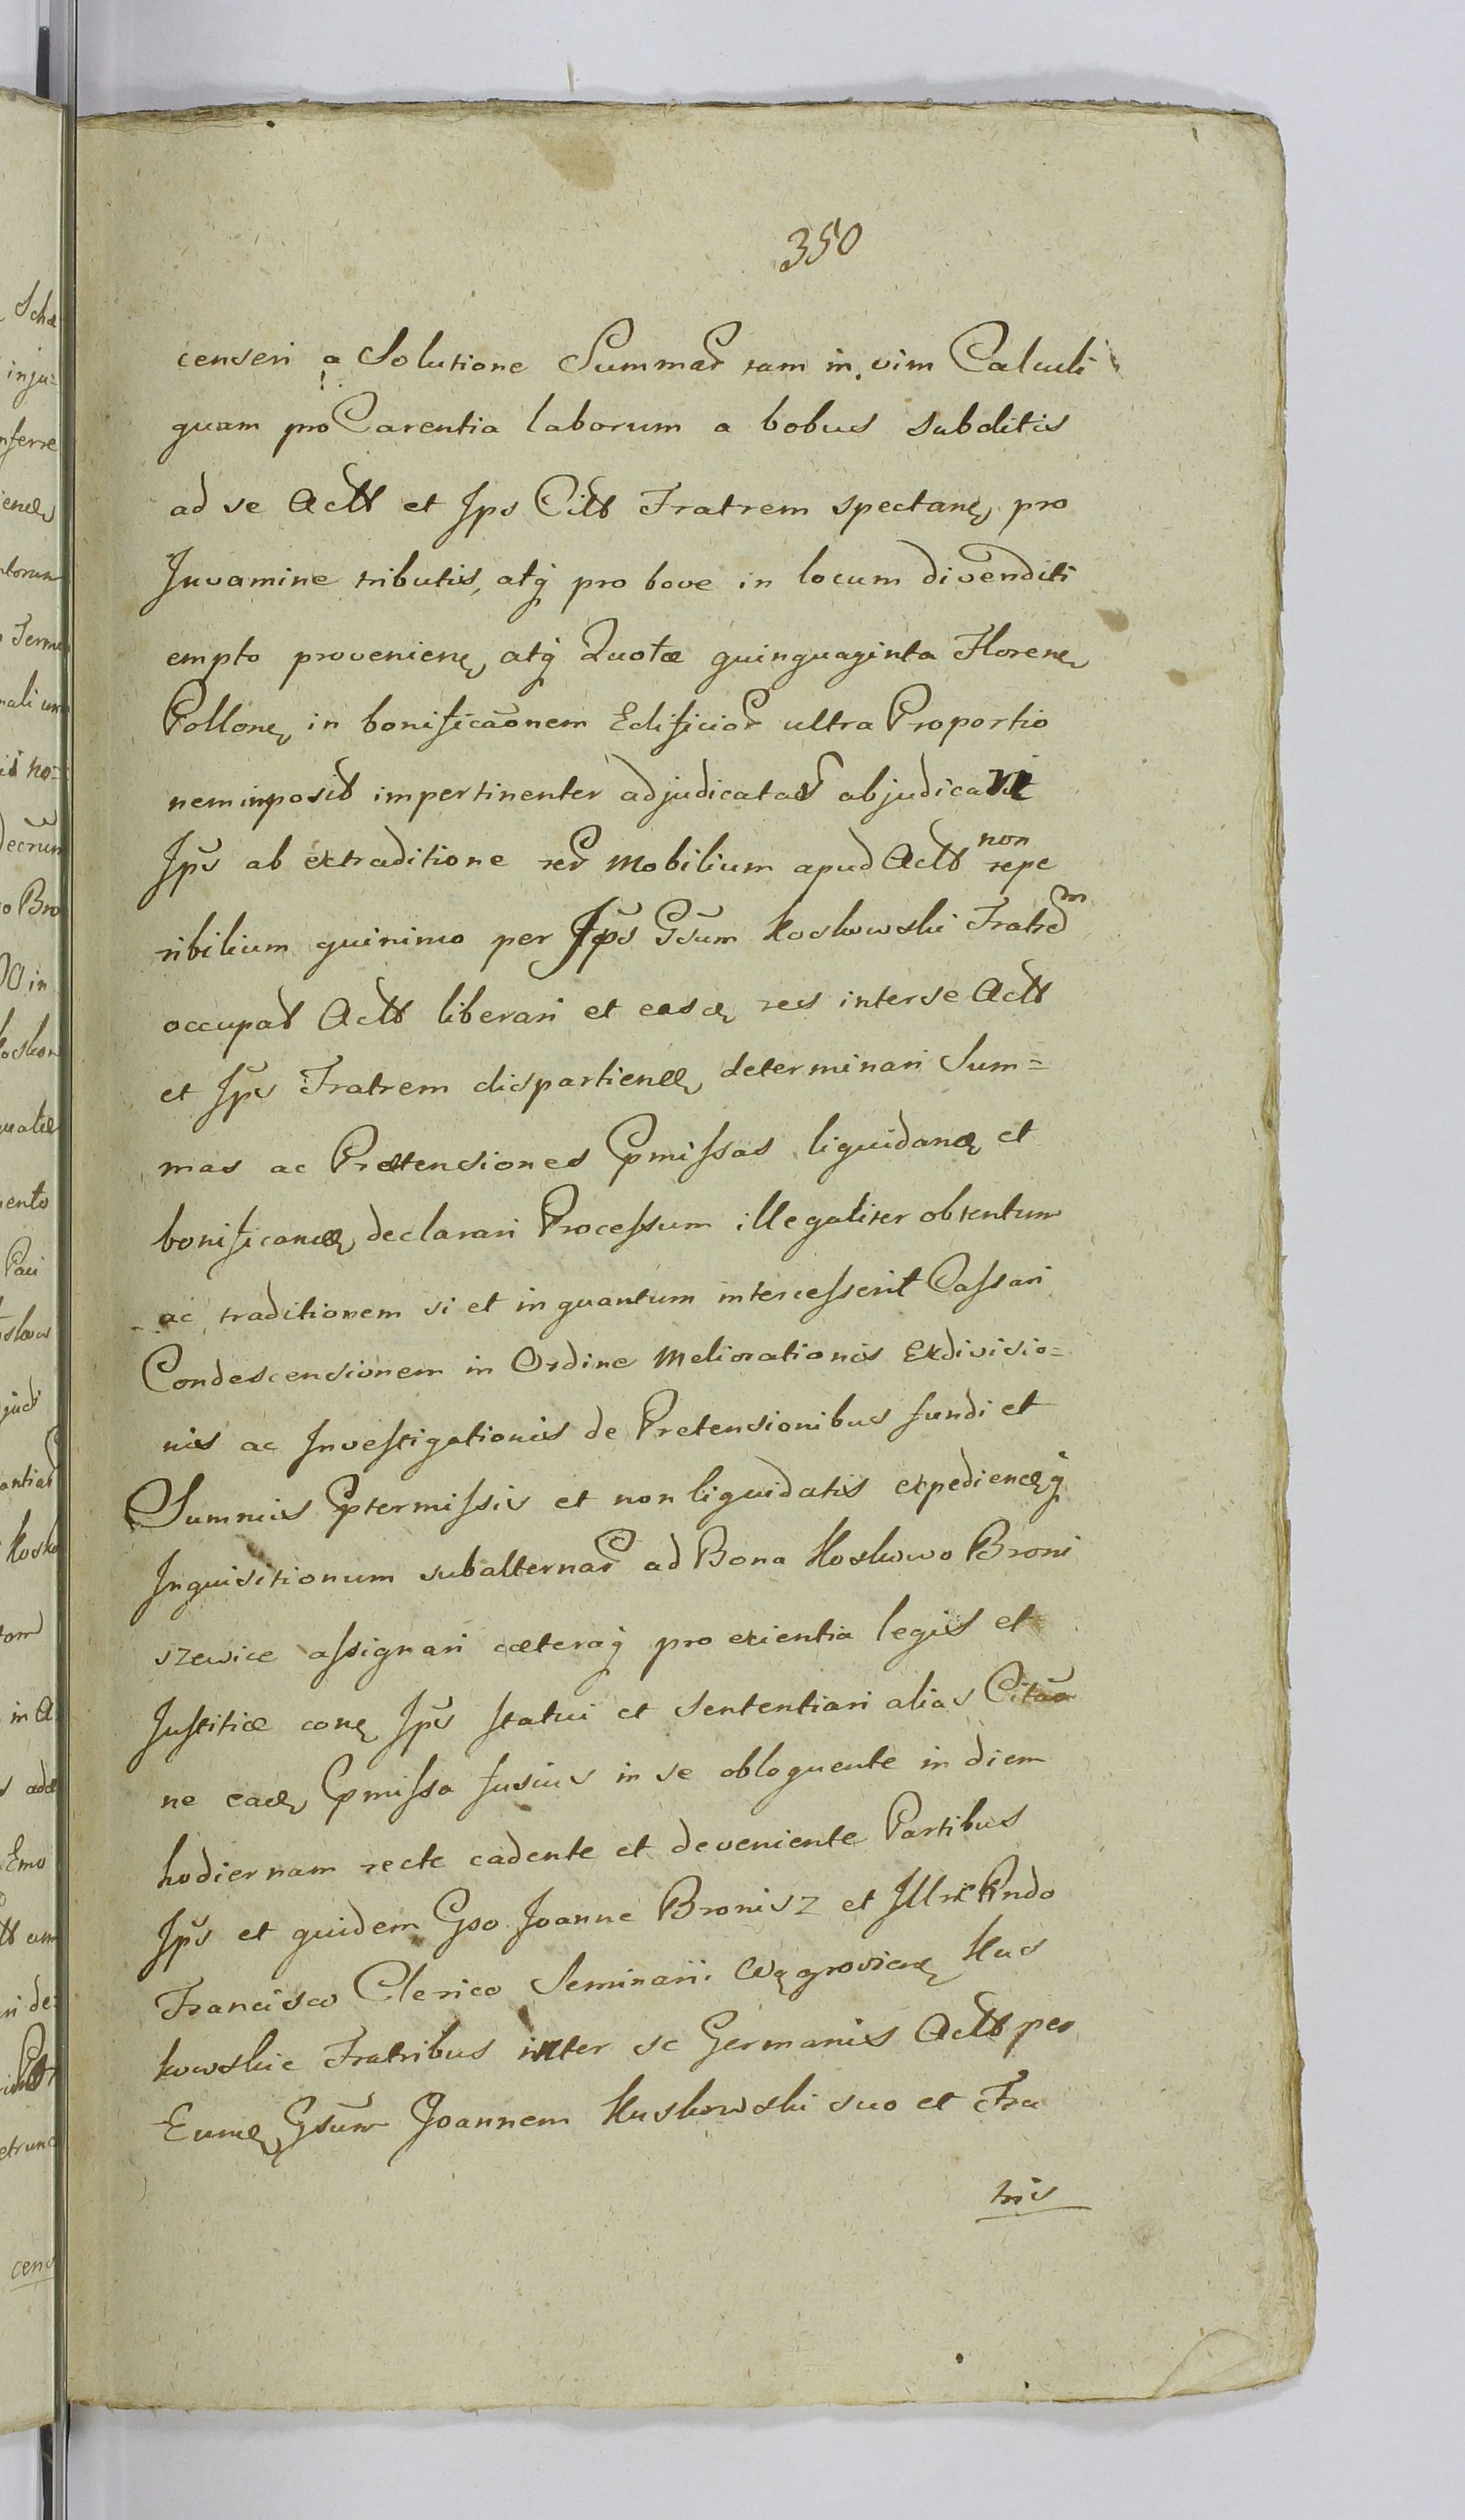 350
censeri a Solutione Summar tam in vim Calculi
quam pro Carentia laborum a bobus subditis
ad se Actt et Ips Citt Fratrem spectan, pro
Juvamine tributis, atq pro bove in locum divenditi
empto provenien, atq Quotæ quinquaginta Floren
Pollon, in bonificaonem Edificior ultra Proportio
nem imposit impertinenter adjudicatas abjudicari
Ips ab extraditione rer Mobilium apud Actt non repe
ribilium quinimo per Ips Gsum Koskowski Fratrem
occupat Actt liberari et easd res interse Actt
et Ips Fratrem dispartiend, determinari Sum=
mas ac Prætensiones pmissas liquidand et
bonificand, declarari Processum illegaliter obtentum
ac traditionem si et in quantum intercesserit Cassari
Condescensionem in Ordine Meliorationis Exdivisio=
nis ac Investigationis de Pretensionibus fundi et
Summis ptermissis et non liquidatis expediendq
Inquisitionum subalternar ad Bona Koskowo Broni
szewice assignari cæteraq pro exientia legis et
Justitiæ con Ips statui et sententiari alias Citao
ne ead pmissa fusius in se obloquente in diem
hodiernam recte cadente et deveniente Partibus
Ips et quidem Gso Joanne Bronisz et Illri Rndo
Francisco Clerico Seminarii Wągrovicen Kus
kowskie Fratribus inter se Germanis Actt per
Eund, Gsum Joannem Kuskowski suo et Fra
tris